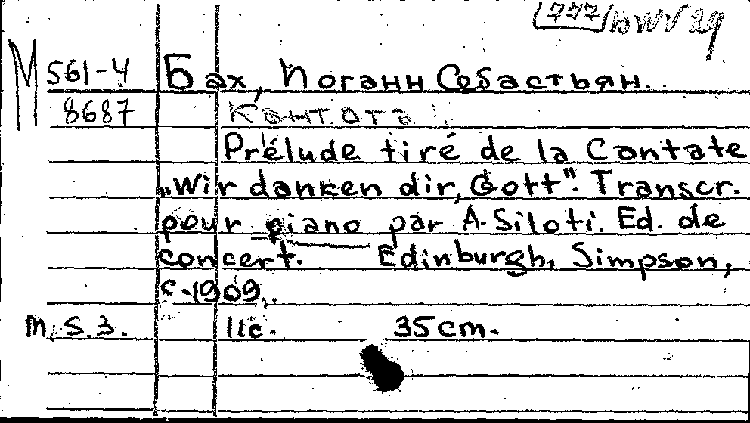 777 bwv 29
М 561-4 Бах, Иоганн Себастьян.
8687 Кантата
Prélude tiré de la Contate
„Wir danken dir, Gott". Transcr.
pour piano par A. Siloti. Ed. de
concert. Edinburgh, Simpson,
c.1909.
m. S. 3. 11c. 35cm.